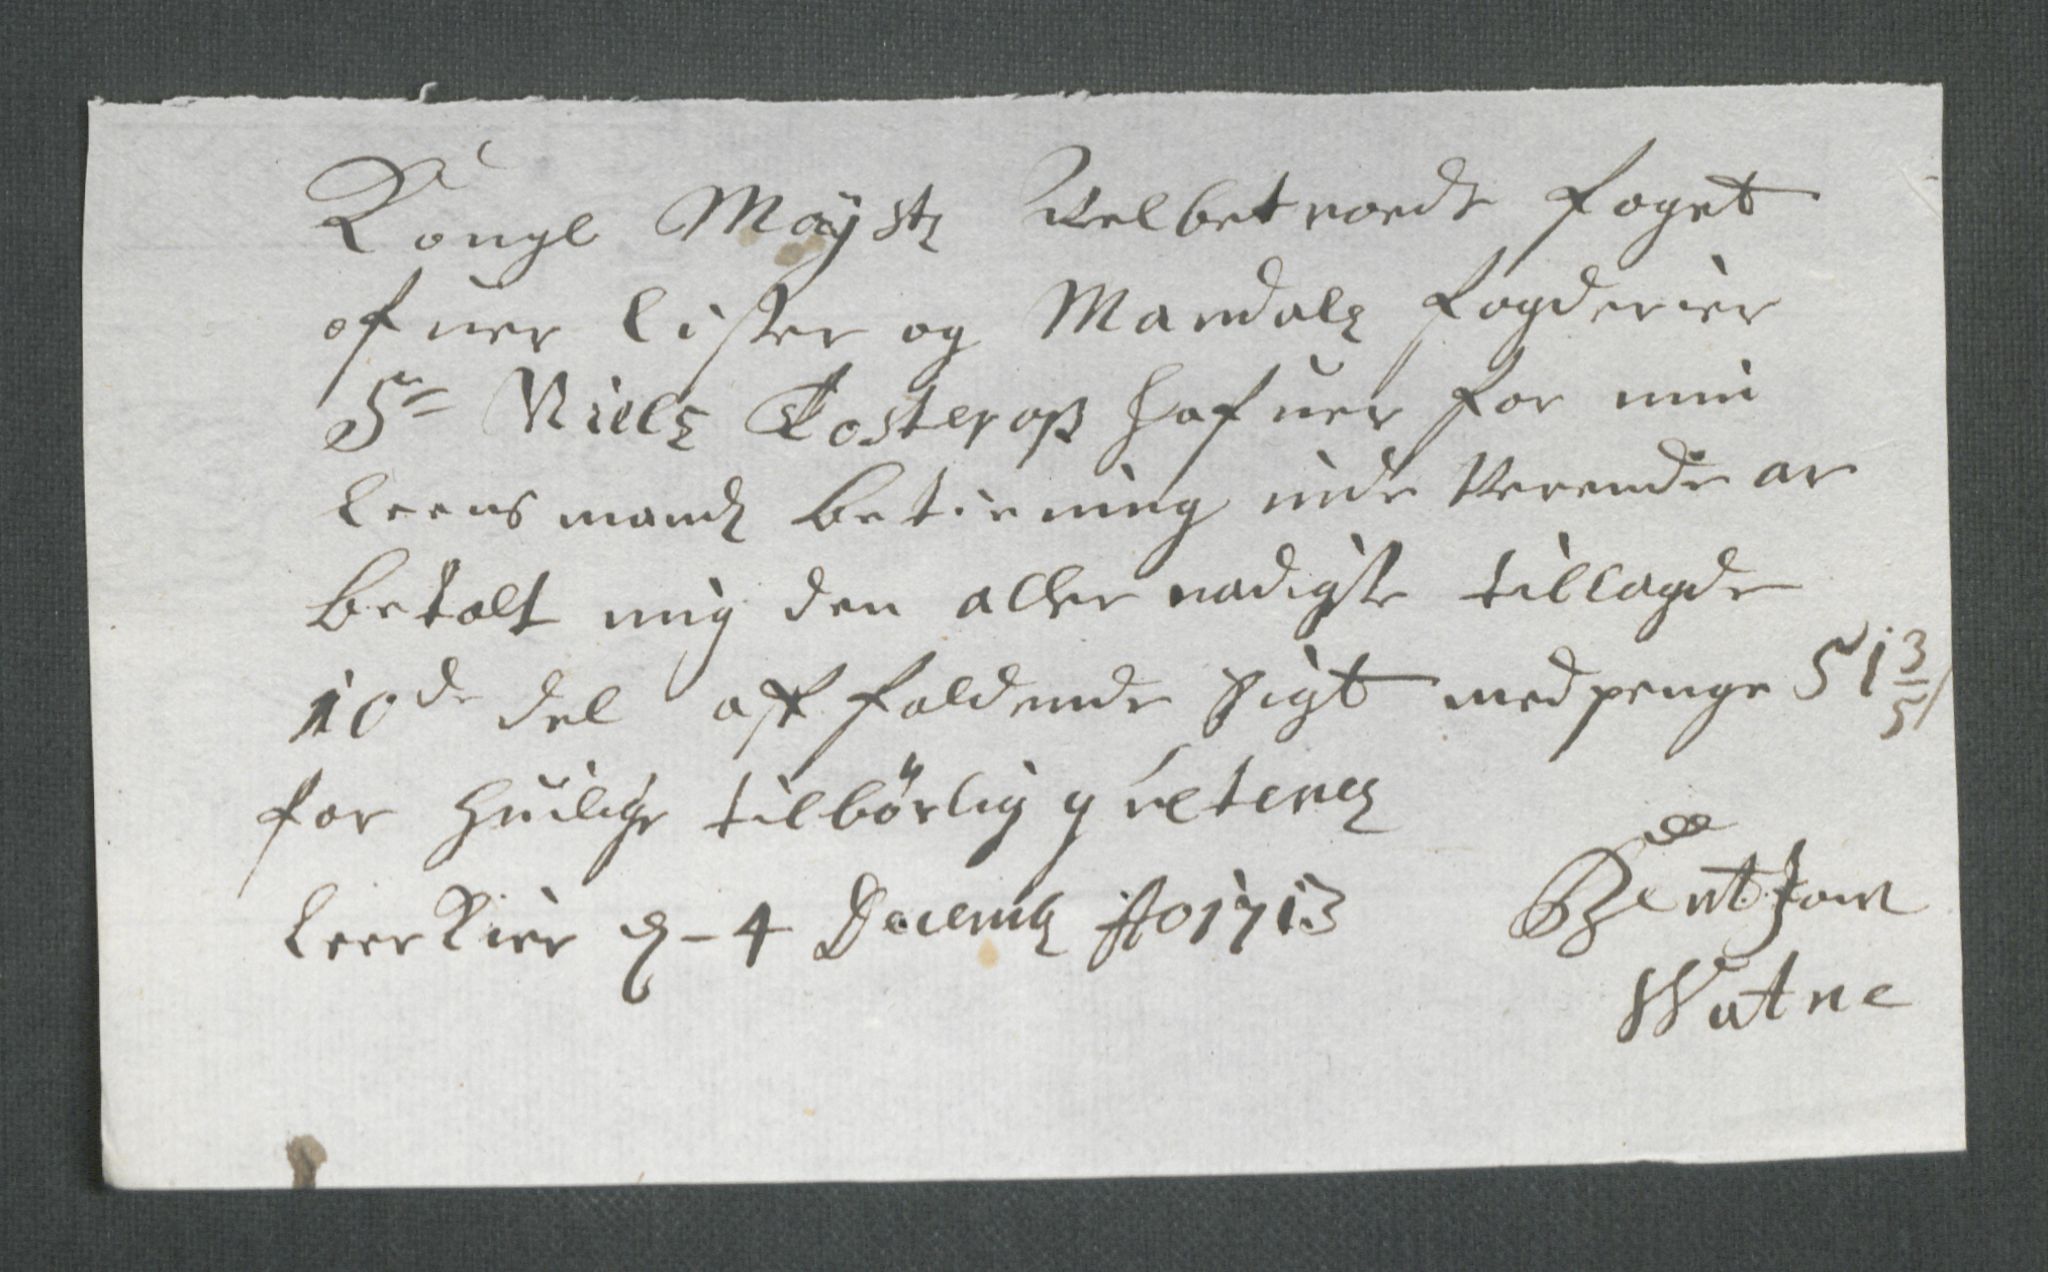 Kongl Mayst: Velbetroede foget
ofuer Lister og Mandals fogderier
Sr Niels Posteroß hafuer for min
Leensmands betiening inde Verende ar
betalt mig den aller nadigste tillagde
10de del aff faldende sigt med penge 51 3/5
for huilche tilbørlig qviteres
Leer Kier d - 4 Decemb Ao 1713
Bent Jon
Watne